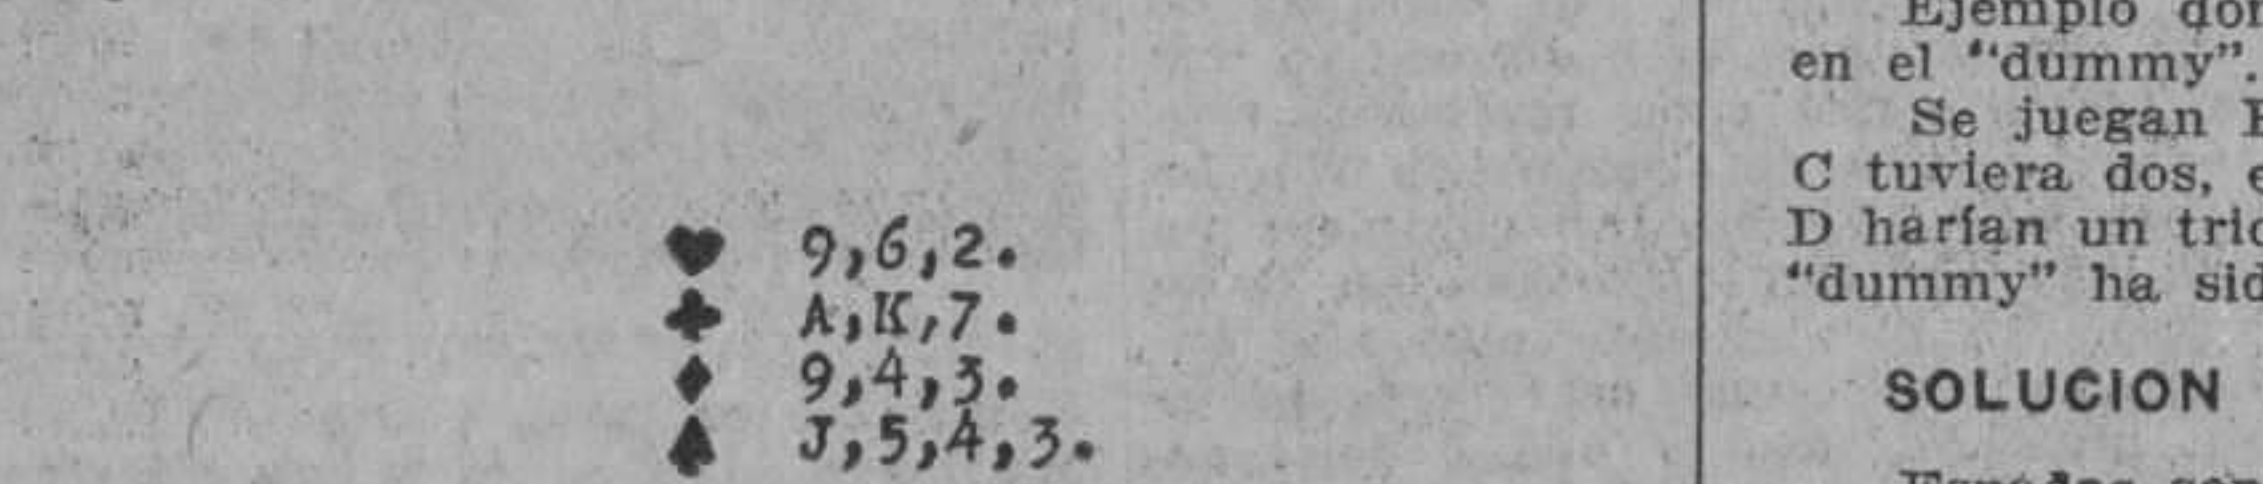 ♥ 9,6,2.
♣ A,K,7.
♦ 9,4,3.
♠ J,5,4,3.
Ejemplo
en el “dummy”.
Se juegan
C tuviera dos,
D harían un
“dummy” ha
SOLUCION